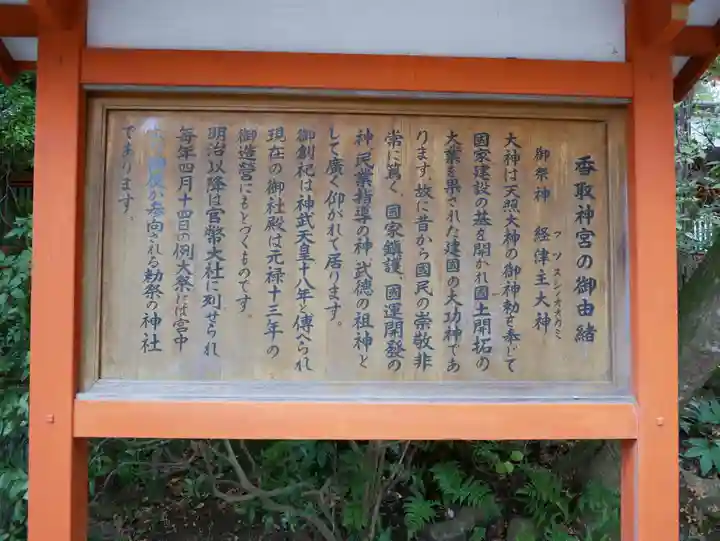 香取神宮の御由緒
御祭神 経津主大神
フツヌシノオオカミ
大神は天照大神の御神勅を奉じて
国家建設の基を開かれ國土開拓の
大業を果された建国の大功神であ
ります。故に昔から國民の崇敬非
常に篤く、國家鎮護、國運開發の
神、民業指導の神、武徳の祖神と
して廣く仰がれて居ります。
御創祀は神武天皇十八年と傳へられ
現在の御社殿は元禄十三年の
御造營にもとづくものです。
明治以降は官幣大社に列せられ
毎年四月十四日の例大祭には宮中
が参向される勅祭の神社
であります。